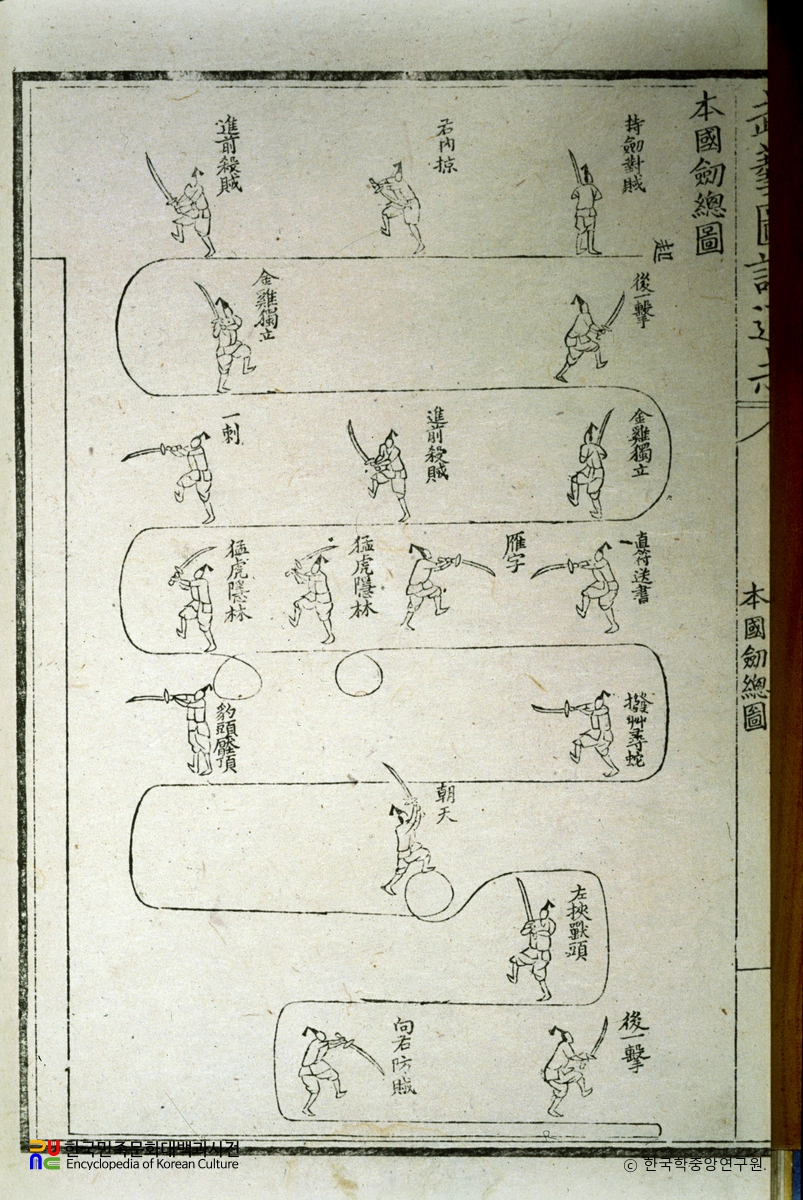 武藝圖譜通志
本國劒總圖
本國劒總圖
起
持劒對賊
右內掠
進前殺賊
金雞獨立
後一擊
金雞獨立
進前殺賊
一刺
猛虎隱林
猛虎隱林
雁字
直符送書
撥艸尋蛇
豹頭壓頂
朝天
左挾獸頭
向右防賊
後一擊
한국민족문화대백과사전
Encyclopedia of Korean Culture
© 한국학중앙연구원